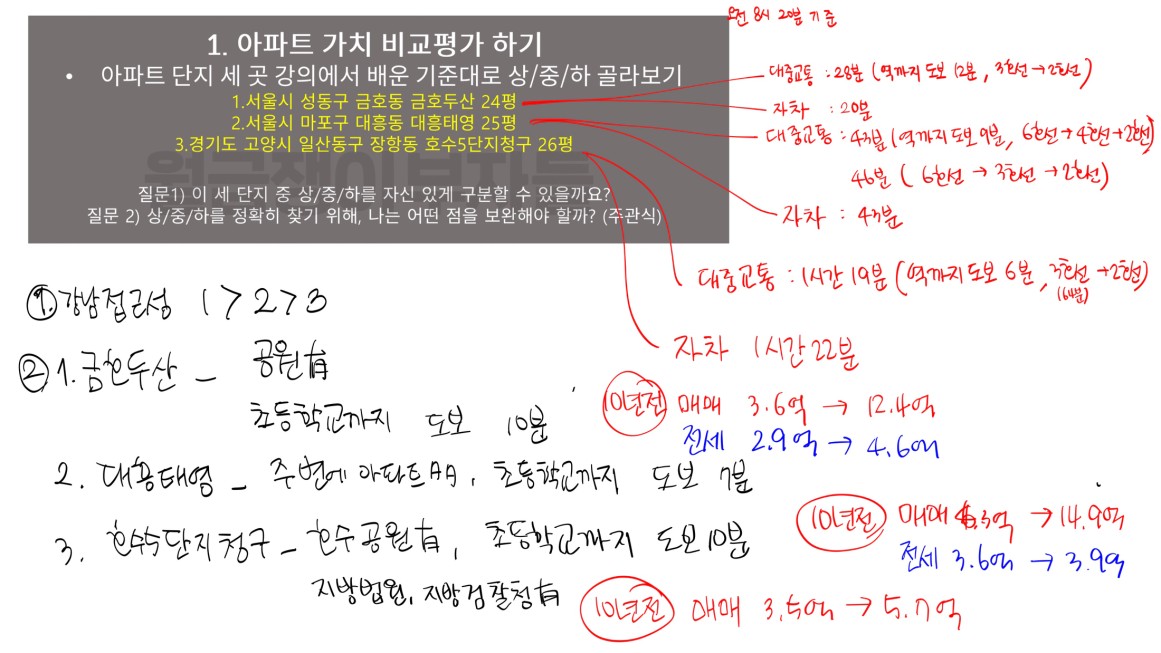 1. 아파트 가치 비교평가 하기
• 아파트 단지 세 곳 강의에서 배운 기준대로 상/중/하 골라보기
1.서울시 성동구 금호동 금호두산 24평
2.서울시 마포구 대흥동 대흥태영 25평
3.경기도 고양시 일산동구 장항동 호수5단지청구 26평
월급쟁이부자들
질문1) 이 세 단지 중 상/중/하를 자신 있게 구분할 수 있을까요?
질문 2) 상/중/하를 정확히 찾기 위해, 나는 어떤 점을 보완해야 할까? (주관식)
오전 8시 20분 기준
대중교통 : 28분 (역까지 도보 12분, 3호선→2호선)
자차 : 20분
대중교통 : 43분 (역까지 도보 9분, 6호선→4호선→2호선)
46분 ( 6호선 → 3호선 →2호선)
자차 : 43분
대중교통 : 1시간 19분 (역까지 도보 6분, 3호선→2호선)
(64분)
자차 1시간 22분
① 강남접근성 1 > 2 > 3
② 1. 금호두산 - 공원有
초등학교까지 도보 10분
10년전 매매 3.6억 → 12.4억
전세 2.9억 → 4.6억
2. 대흥태영 - 주변에 아파트 , 초등학교까지 도보 7분
10년전 매매 .3억 → 14.9억
전세 3.6억 → 3.9억
3. 호수5단지청구 - 호수공원有, 초등학교까지 도보10분
지방법원, 지방검찰청有
10년전 매매 3.5억 → 5.7억